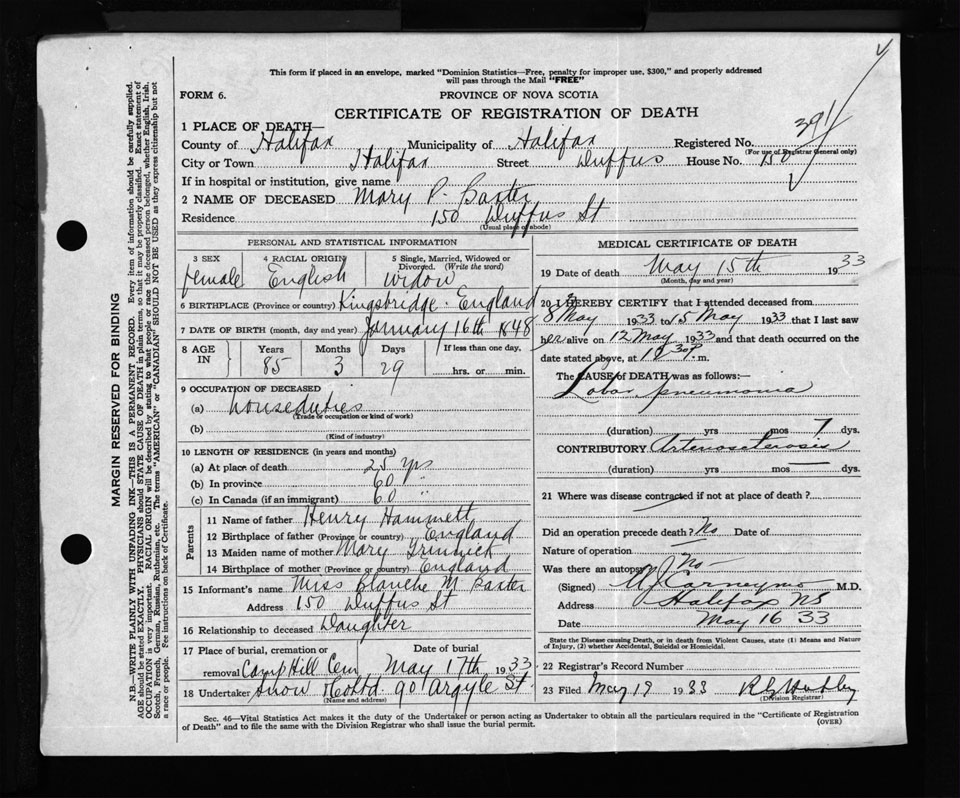 This form if placed in an envelope, marked "Dominion Statistics—Free, penalty for improper use, $300," and properly addressed
will pass through the Mail "FREE"
FORM 6.
PROVINCE OF NOVA SCOTIA
CERTIFICATE OF REGISTRATION OF DEATH
1 PLACE OF DEATH—
County of Halifax Municipality of Halifax Registered No. 391
(For use of Registrar General only)
City or Town Halifax Street Duffus House No. 150
If in hospital or institution, give name
2 NAME OF DECEASED Mary P. Baxter
Residence 150 Duffus St
(Usual place of abode)
PERSONAL AND STATISTICAL INFORMATION
3 SEX 4 RACIAL ORIGIN 5 Single, Married, Widowed or
Divorced. (Write the word)
female English Widow
6 BIRTHPLACE (Province or country) Kingsbridge. England
7 DATE OF BIRTH (month, day and year) January 16th 1848
8 AGE IN Years Months Days If less than one day,
85 3 29 hrs. or min.
9 OCCUPATION OF DECEASED
(a) housedu​ties
(Trade or occupation or kind of work)
(b)
(Kind of industry)
10 LENGTH OF RESIDENCE (in years and months)
(a) At place of death 25 yrs
(b) In province 60 "
(c) In Canada (if an immigrant) 60
Parents
11 Name of father Henry Hammett
12 Birthplace of father (Province or country) England
13 Maiden name of mother Mary
14 Birthplace of mother (Province or country) England
15 Informant's name Miss Blanche M Baxter
Address 150 Duffus St
16 Relationship to deceased Daughter
17 Place of burial, cremation or Date of burial
removal Camp Hill Cem May 17th 1933
18 Undertaker Snow & Co Ltd. 90 Argyle St.
(Name and address)
MEDICAL CERTIFICATE OF DEATH
19 Date of death May 15th 1933
(Month, day and year)
20 I HEREBY CERTIFY that I attended deceased from
8 May 1933 to 15 May 1933 that I last saw
her alive on 12 May 1933 and that death occurred on the
date stated above, at 10.30 P. m.
The CAUSE of DEATH was as follows:—
Lobar pneumonia
(duration) yrs mos 7 dys.
CONTRIBUTORY Arteriosclerosis
(duration) yrs mos dys.
21 Where was disease contracted if not at place of death?
Did an operation precede death? No Date of
Nature of operation
Was there an autopsy? No
(Signed) M.D.
Address Halifax NS
Date May 16 33
State the Disease causing Death, or in death from Violent Causes, state (1) Means and Nature
of Injury, (2) whether Accidental, Suicidal or Homicidal.
22 Registrar's Record Number
23 Filed May 19 1933
(Division Registrar)
Sec. 46—Vital Statistics Act makes it the duty of the Undertaker or person acting as Undertaker to obtain all the particulars required in the "Certificate of Registration
of Death" and to file the same with the Division Registrar who shall issue the burial permit. (OVER)
MARGIN RESERVED FOR BINDING
N.B.—WRITE PLAINLY WITH UNFADING INK—THIS IS A PERMANENT RECORD. Every item of information should be carefully supplied.
AGE should be stated EXACTLY. PHYSICIANS should STATE CAUSE OF DEATH in plain terms, so that it may be properly classified. Exact statement of
OCCUPATION is very important. RACIAL ORIGIN will be described by stating to what people or race the deceased person belonged, whether English, Irish,
Scotch, French, German, Russian, Ruthenian, etc. The terms "AMERICAN" or "CANADIAN" SHOULD NOT BE USED as they express citizenship but not
a race or people. See instructions on back of Certificate.